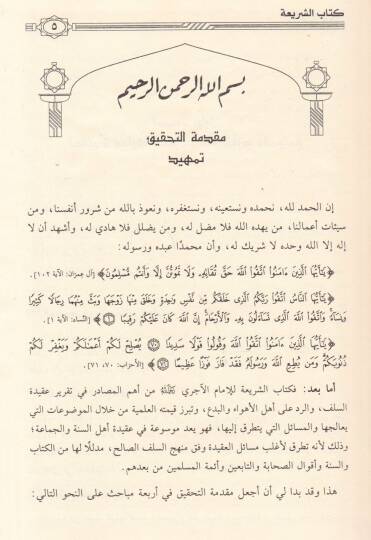 كتاب الشريعة
٥
بسم الله الرحمن الرحيم
مقدمة التحقيق
تمهيد
إن الحمد لله، نحمده ونستعينه، ونستغفره، ونعوذ بالله من شرور أنفسنا، ومن
سيئات أعمالنا، من يهده الله فلا مضل له، ومن يضلل فلا هادي له، وأشهد أن لا
إله إلا الله وحده لا شريك له، وأن محمدًا عبده ورسوله:
﴿يَٰٓأَيُّهَا ٱلَّذِينَ ءَامَنُوا۟ ٱتَّقُوا۟ ٱللَّهَ حَقَّ تُقَاتِهِۦ وَلَا تَمُوتُنَّ إِلَّا وَأَنتُم مُّسْلِمُونَ﴾ [آل عمران: الآية ١٠٢].
﴿يَٰٓأَيُّهَا ٱلنَّاسُ ٱتَّقُوا۟ رَبَّكُمُ ٱلَّذِى خَلَقَكُم مِّن نَّفْسٍ وَٰحِدَةٍ وَخَلَقَ مِنْهَا زَوْجَهَا وَبَثَّ مِنْهُمَا رِجَالًا كَثِيرًا
وَنِسَآءً ۚ وَٱتَّقُوا۟ ٱللَّهَ ٱلَّذِى تَسَآءَلُونَ بِهِۦ وَٱلْأَرْحَامَ ۚ إِنَّ ٱللَّهَ كَانَ عَلَيْكُمْ رَقِيبًا ①﴾ [النساء: الآية ١].
﴿يَٰٓأَيُّهَا ٱلَّذِينَ ءَامَنُوا۟ ٱتَّقُوا۟ ٱللَّهَ وَقُولُوا۟ قَوْلًا سَدِيدًا ٧٠ يُصْلِحْ لَكُمْ أَعْمَٰلَكُمْ وَيَغْفِرْ لَكُمْ
ذُنُوبَكُمْ ۗ وَمَن يُطِعِ ٱللَّهَ وَرَسُولَهُۥ فَقَدْ فَازَ فَوْزًا عَظِيمًا ٧١﴾ [الأحزاب: ٧٠، ٧١].
أما بعد: فكتاب الشريعة للإمام الآجري رحمه الله من أهم المصادر في تقرير عقيدة
السلف، والرد على أهل الأهواء والبدع، وتبرز قيمته العلمية من خلال الموضوعات التي
يعالجها والمسائل التي يتطرق إليها، فهو يعد موسوعة في عقيدة أهل السنة والجماعة؛
وذلك لأنه تطرق لأغلب مسائل العقيدة وفق منهج السلف الصالح، مدللًا لها من الكتاب
والسنة وأقوال الصحابة والتابعين وأئمة المسلمين من بعدهم.
هذا وقد بدا لي أن أجعل مقدمة التحقيق في أربعة مباحث على النحو التالي: